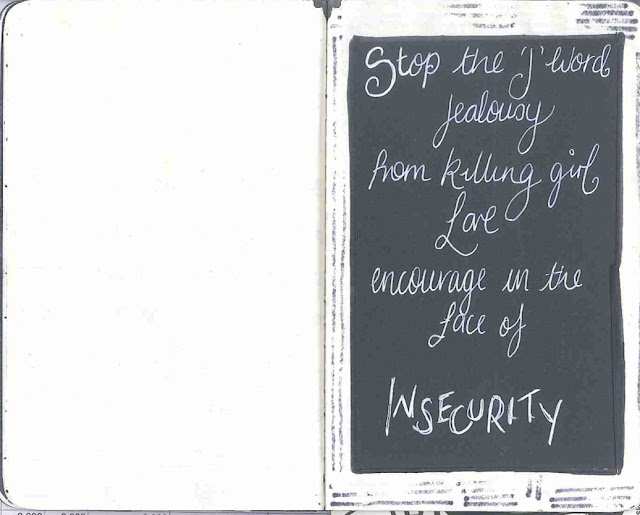 Stop the 'J' Word
Jealousy
from killing girl
Love
encourage in the
face of
INSECURITY